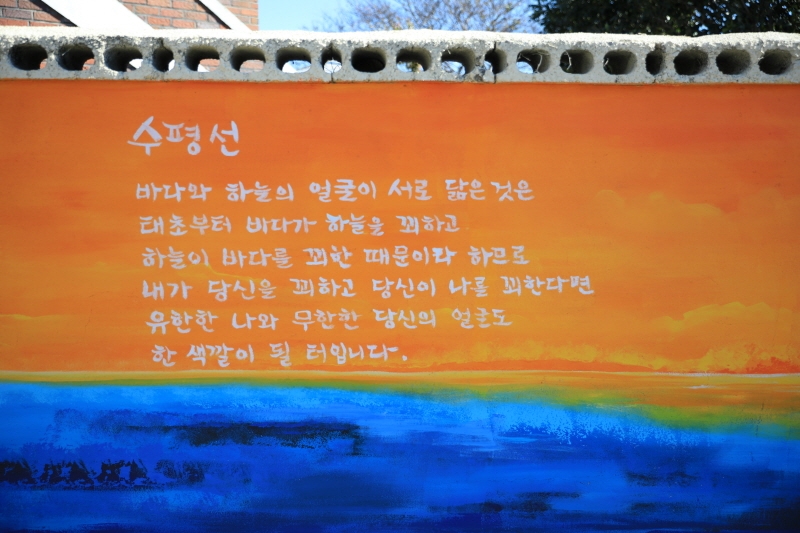 수평선
바다와 하늘의 얼굴이 서로 닮은 것은
태초부터 바다가 하늘을 꾀하고
하늘이 바다를 꾀한 때문이라 하므로
내가 당신을 꾀하고 당신이 나를 꾀한다면
유한한 나와 무한한 당신의 얼굴도
한 색깔이 될 터입니다.